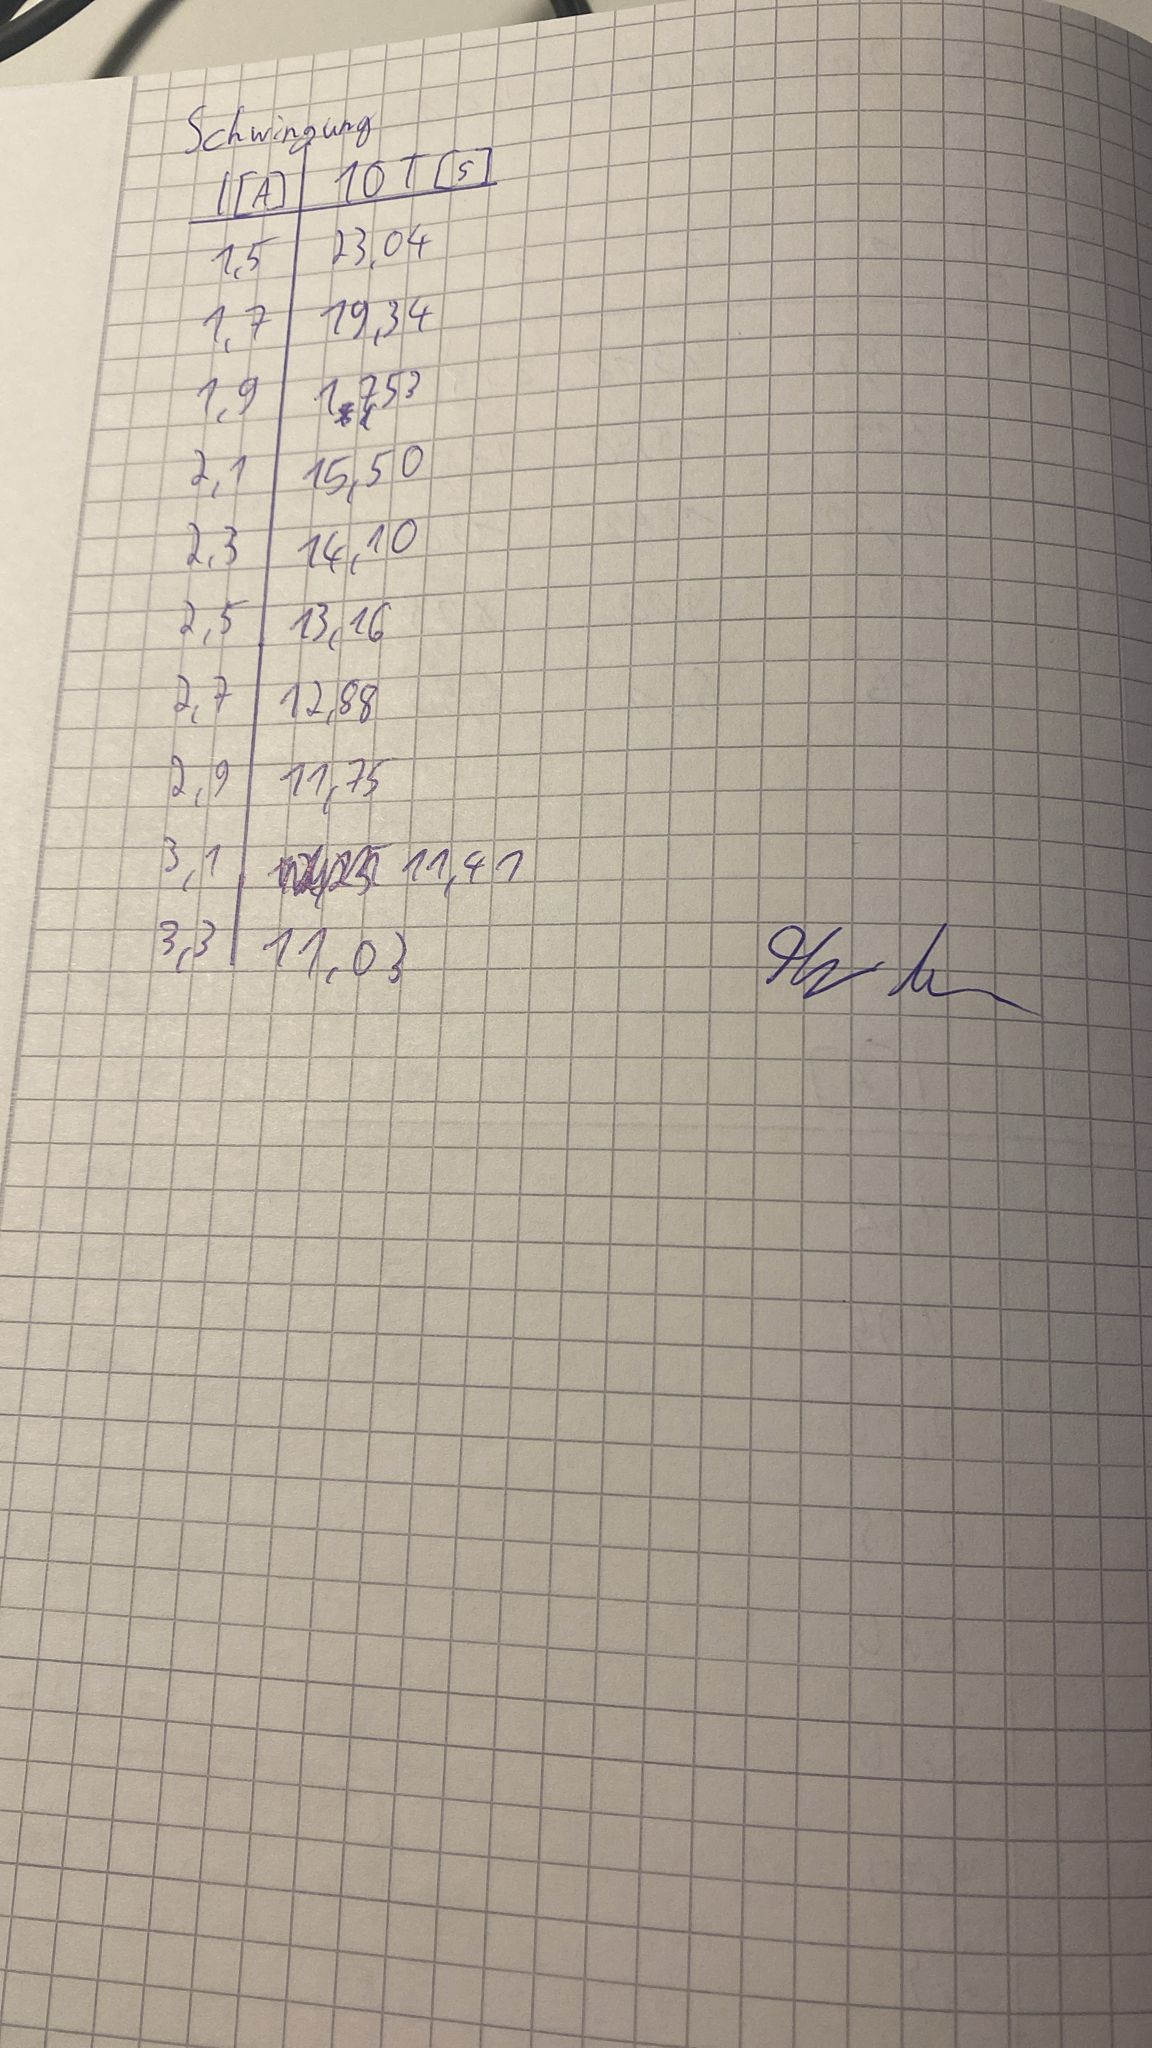 Schwingung
I[A] 10 T [s]
1,5 23,04
1,7 19,34
1,9 17,53
2,1 15,50
2,3 14,10
2,5 13,16
2,7 12,88
2,9 11,75
3,1 11,41
3,3 11,03